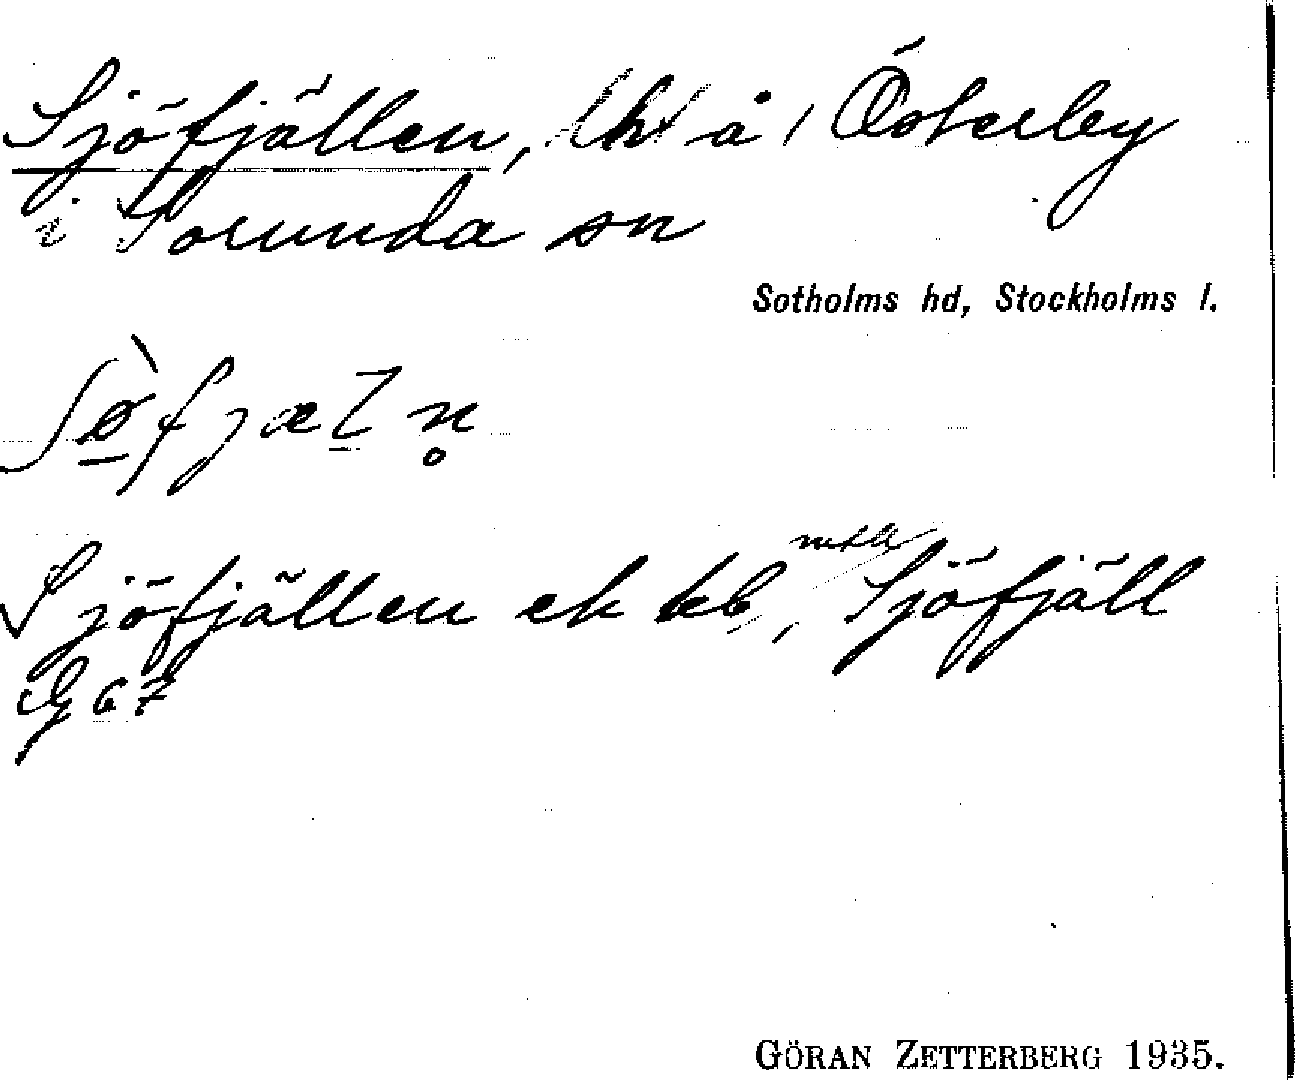 Sjöfjällen, lht å Österby
i Sorunda sn
Sotholms hd, Stockholms l.
Sjöfjällen ek kb, Sjöfjäll
G 67
GÖRAN ZETTERBERG 1935.